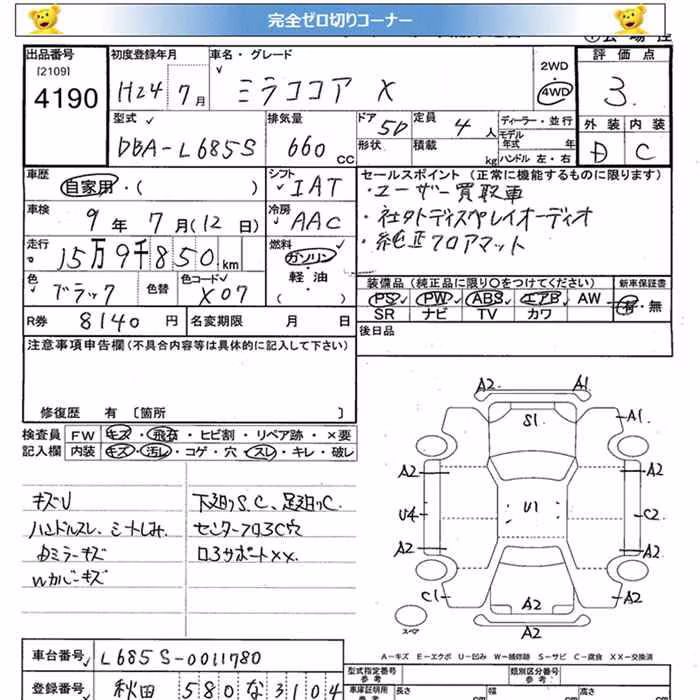 完全ゼロ切りコーナー
出品番号 初度登録年月 車名・グレード 2WD 評価点
[2109] 4190 H24 7月 ミラココア X 4WD 3
型式 排気量 ドア 5D 定員 4人 ディーラー・並行 外装 内装
DBA-L685S 660cc 形状 積載 kg モデル年式 年 D C
ハンドル 左・右
車歴 自家用・( ) シフト IAT セールスポイント (正常に機能するものに限ります)
・ユーザー買取車
車検 9年 7月(12日) 冷房 AAC ・社外ディスプレイオーディオ
走行 15万9千850km 燃料 ガソリン ・純正フロアマット
軽・油
( )
色 ブラック 色替 色コード X07 装備品 (純正品に限り○をつけてください) 新車保証書
PS PW ABS エアB AW 有・無
R券 8140円 名変期限 月 日 SR ナビ TV カワ
注意事項申告欄(不具合内容等は具体的に記入して下さい) 後日品
修復歴 有 〔箇所 〕
検査員 FW キズ・飛石・ヒビ割・リペア跡・×要
記入欄 内装 キズ・汚レ・コゲ・穴・スレ・キレ・破レ
キズU 下廻りS.C、足廻りC.
ハンドルスレ、シートしみ. センターフロアC穴
ドミラーキズ ロアサポート××.
Wカバーキズ
A2 A1
S1 A1
A2 A2
U4 U1 C2
A2 A2
C1 A2 A2
スペア A2
A-キズ E-エクボ U-凹み W-補修跡 S-サビ C-腐食 XX-交換済
車台番号 L685S-0011780
型式指定番号 参考 類別区分番号 参考
登録番号 秋田 580 な 3104
車庫証明用 参考 長さ 幅 高さ